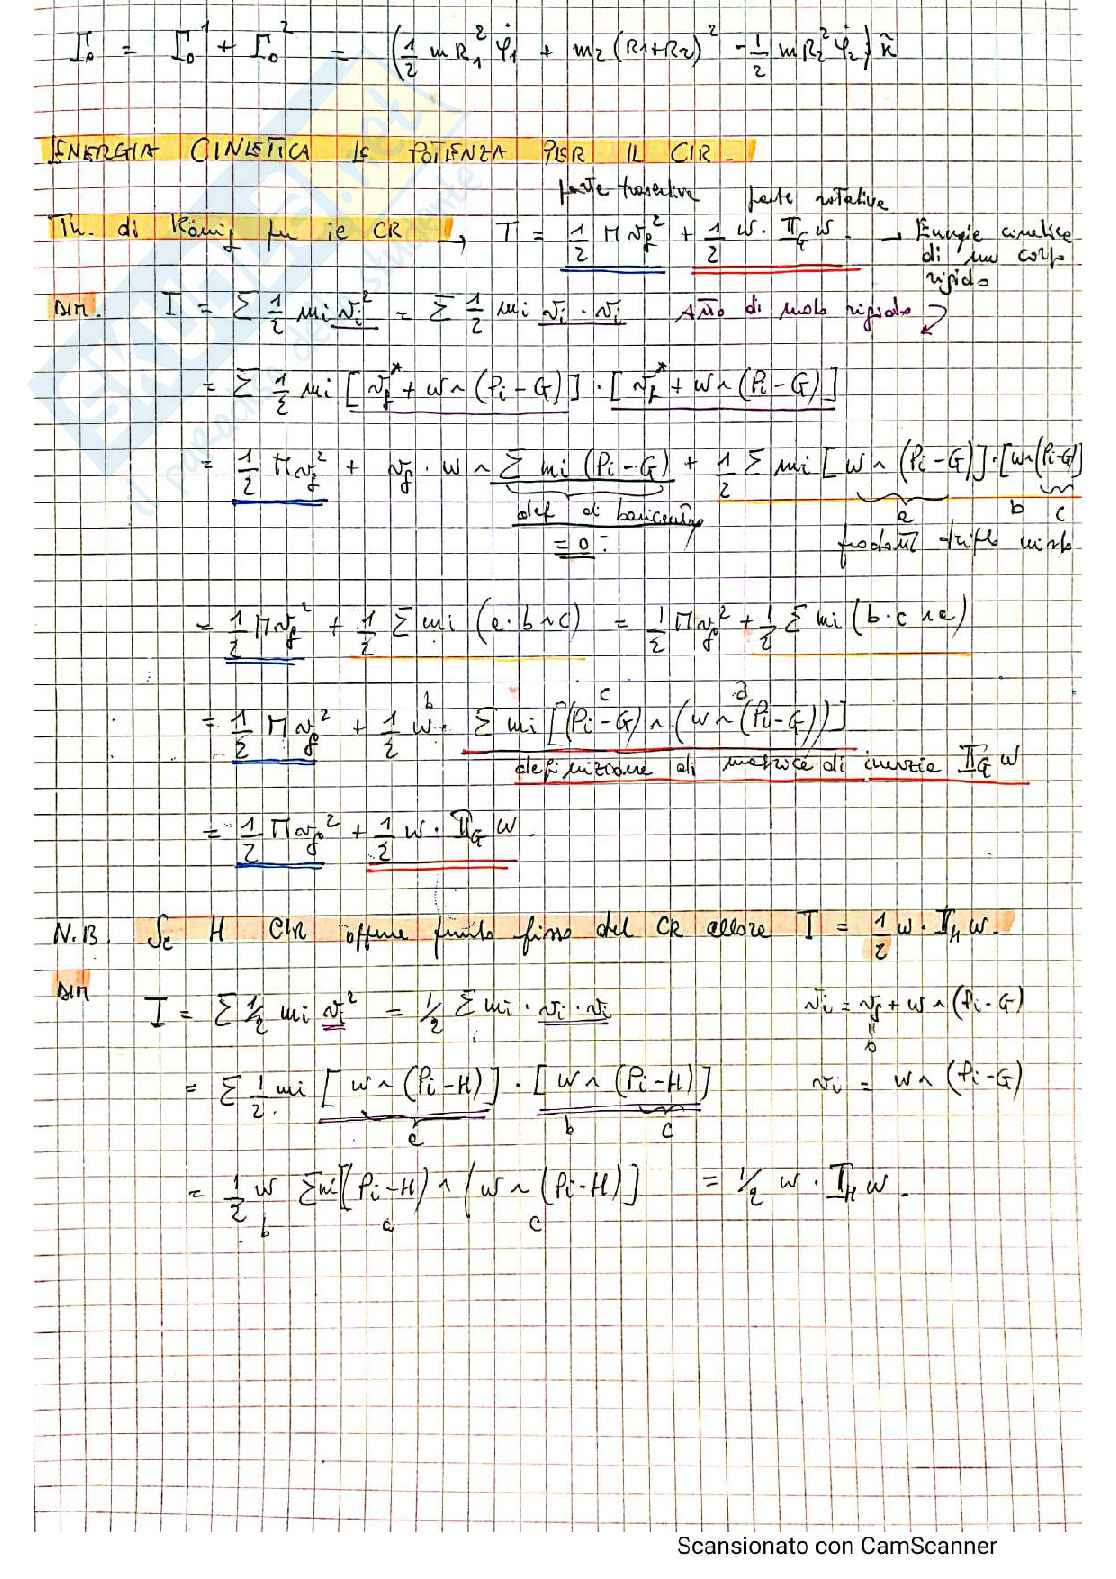 Γ₀ = Γ₀¹ + Γ₀² = (1/2 m R₁² φ̇₁ + m₂ (R1+R2)² - 1/2 m R₂² φ̇₂) k̂
ENERGIA CINETICA E POTENZA PER IL CIR
parte traslativa parte rotativa
Th. di König per il CR → T = 1/2 M v_g² + 1/2 w · II_G w → Energia cinetica
di un corpo
rigido
DIM. T = Σ 1/2 mi vi² = Σ 1/2 mi vi · vi Atto di moto rigido
= Σ 1/2 mi [v_g* + w ∧ (Pi - G)] · [v_g* + w ∧ (Pi - G)]
= 1/2 M v_g² + v_g · w ∧ Σ mi (Pi - G) + 1/2 Σ mi [w ∧ (Pi - G)] · [w ∧ (Pi - G)]
a b c
def di baricentro
= 0 prodotto triplo misto
= 1/2 M v_g² + 1/2 Σ mi (a · b ∧ c) = 1/2 M v_g² + 1/2 Σ mi (b · c ∧ a)
b c a
= 1/2 M v_g² + 1/2 w · Σ mi [(Pi - G) ∧ (w ∧ (Pi - G))]
definizione di matrice di inerzia II_G w
= 1/2 M v_g² + 1/2 w · II_G w
N.B. Se H CIR oppure punto fisso del CR allora T = 1/2 w · I_H w.
DIM T = Σ 1/2 mi vi² = 1/2 Σ mi · vi · vi vi = v_g + w ∧ (Pi - G)
0
= Σ 1/2 mi [w ∧ (Pi - H)] · [w ∧ (Pi - H)] vi = w ∧ (Pi - G)
a b c
= 1/2 w Σ mi [(Pi - H) ∧ (w ∧ (Pi - H)] = 1/2 w · I_H w.
b a c
Scansionato con CamScanner